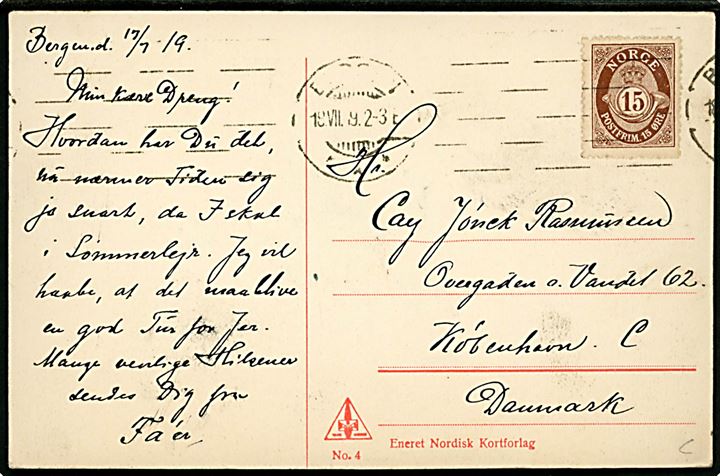 Bergen. d. 17/7-19.
Min kære Dreng!
Hvordan har Du det,
nu nærmer Tiden sig
jo snart, da I skal
i Sommerlejr. Jeg vil
haabe, at det maa blive
en god Tur for Jer.
Mange venlige Hilsener
sendes Dig fra
Fa'er
19.VII.19.2-3E
NORGE
15
POSTFRIM. 15 ØRE
Hr.
Cay Jönck Rasmussen
Overgaden o. Vandet 62.
København. C
Danmark
No. 4
Eneret Nordisk Kortforlag